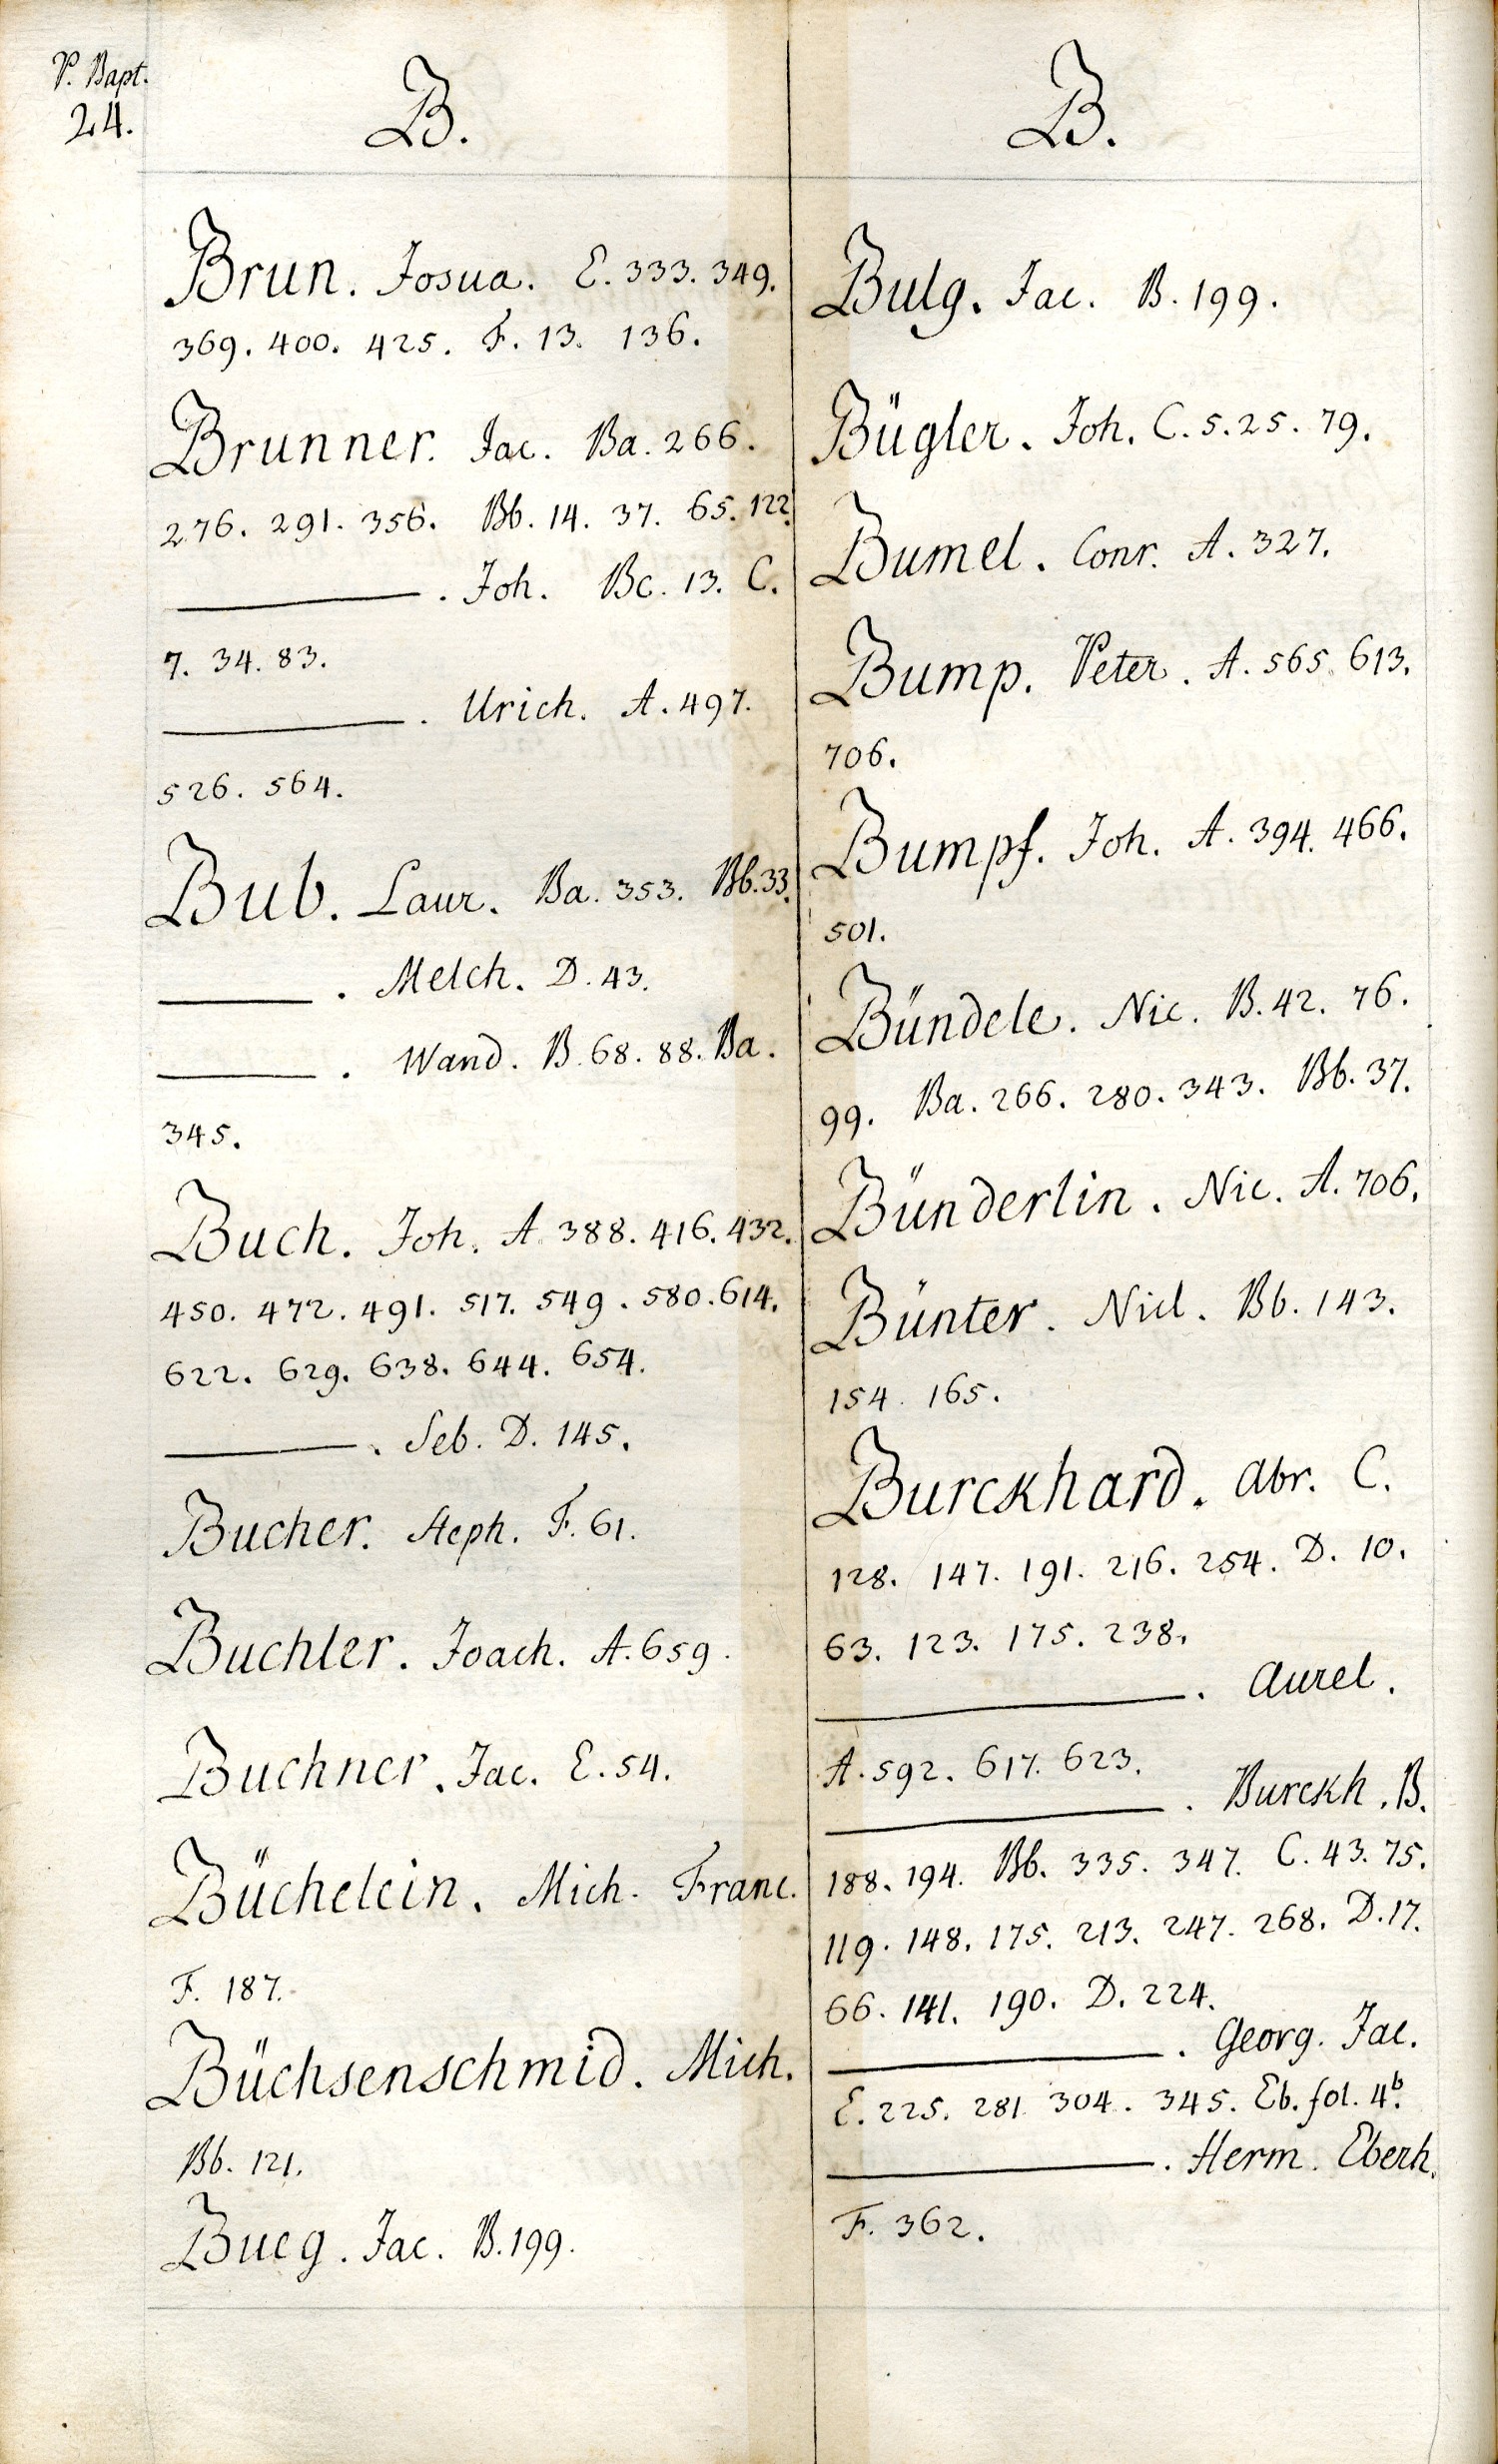 P. Bapt.
24.
B.
Brun. Josua. E. 333. 349.
369. 400. 425. F. 13. 136.
Brunner. Jac. Ba. 266.
276. 291. 356. Bb. 14. 37. 65. 122.
———. Joh. Bc. 13. C.
7. 34. 83.
———. Urich. A. 497.
526. 564.
Bub. Laur. Ba. 353. Bb. 33.
———. Melch. D. 43.
———. Wand. B. 68. 88. Ba.
345.
Buch. Joh. A. 388. 416. 432.
450. 472. 491. 517. 549. 580. 614.
622. 629. 638. 644. 654.
———. Seb. D. 145.
Bucher. Steph. F. 61.
Buchler. Joach. A. 659.
Buchner. Jac. E. 54.
Büchelein. Mich. Franc.
F. 187.
Büchsenschmid. Mich.
Bb. 121.
Bueg. Jac. B. 199.
B.
Bulg. Jac. B. 199.
Bügler. Joh. C. 5. 25. 79.
Bumel. Conr. A. 327.
Bump. Peter. A. 565. 613.
706.
Bumpf. Joh. A. 394. 466.
501.
Bündele. Nic. B. 42. 76.
99. Ba. 266. 280. 343. Bb. 37.
Bünderlin. Nic. A. 706.
Bünter. Nicl. Bb. 143.
154. 165.
Burckhard. Abr. C.
128. 147. 191. 216. 254. D. 10.
63. 123. 175. 238.
———. Aurel.
A. 592. 617. 623.
———. Burckh. B.
188. 194. Bb. 335. 347. C. 43. 75.
119. 148. 175. 213. 247. 268. D. 17.
66. 141. 190. D. 224.
———. Georg. Jac.
E. 225. 281. 304. 345. Eb. fol. 4b.
———. Herm. Eberh.
F. 362.